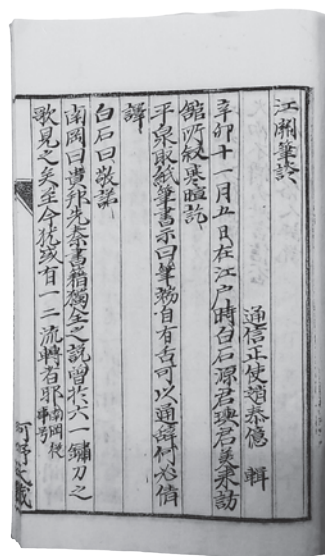 江關筆談
通信正使趙泰億 輯
辛卯十一月五日在江户時白石源君璵君美来訪
館所敍寒暄訖
平泉取紙筆書示曰筆端自有舌可以通辭何必借
譯
白石曰敬諾
南岡曰貴邦先秦書籍獨全之說曽於六一鏽刀之
歌見之矣至今猶或有一二流轉者耶南岡棱事号